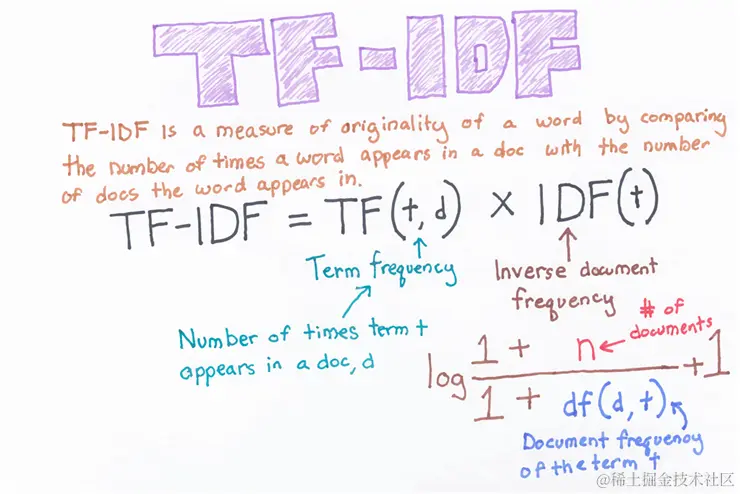 TF-IDF
TF-IDF is a measure of originality of a word by comparing
the number of times a word appears in a doc with the number
of docs the word appears in.
TF-IDF = TF(t, d) × IDF(t)
Term frequency
Inverse document
frequency
Number of times term t
appears in a doc, d
# of
documents
log 1 + n / 1 + df(d, t) + 1
Document frequency
of the term t
@稀土掘金技术社区